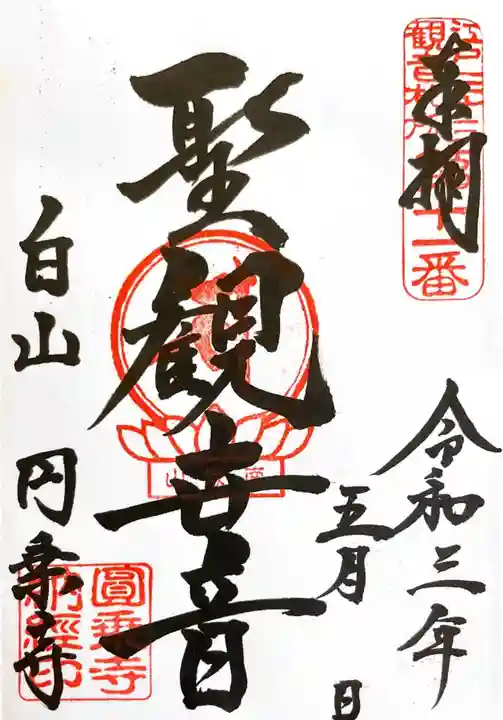 奉拝
江戸三十三観音札所第十一番
令和三年
五月 日
聖観世音
白山 円乗寺
圓乗寺納経印